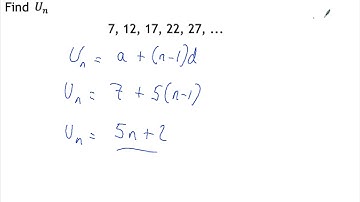 Find Uₙ
7, 12, 17, 22, 27, ...
Uₙ = a + (n-1)d
Uₙ = 7 + 5(n-1)
Uₙ = 5n+2